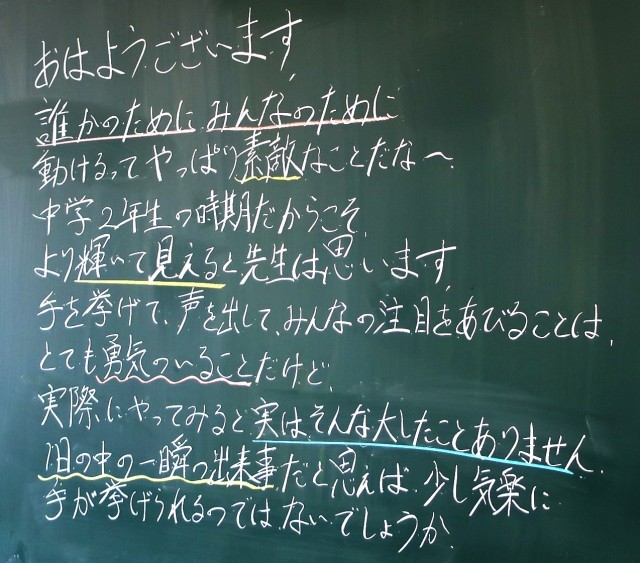 おはようございます。
誰かのために、みんなのために
動けるってやっぱり素敵なことだな〜。
中学2年生の時期だからこそ、
より輝いて見えると先生は思います。
手を挙げて、声を出して、みんなの注目をあびることは、
とても勇気のいることだけど、
実際にやってみると実はそんな大したことありません。
1日の中の一瞬の出来事だと思えば、少し気楽に
手が挙げられるのではないでしょうか。